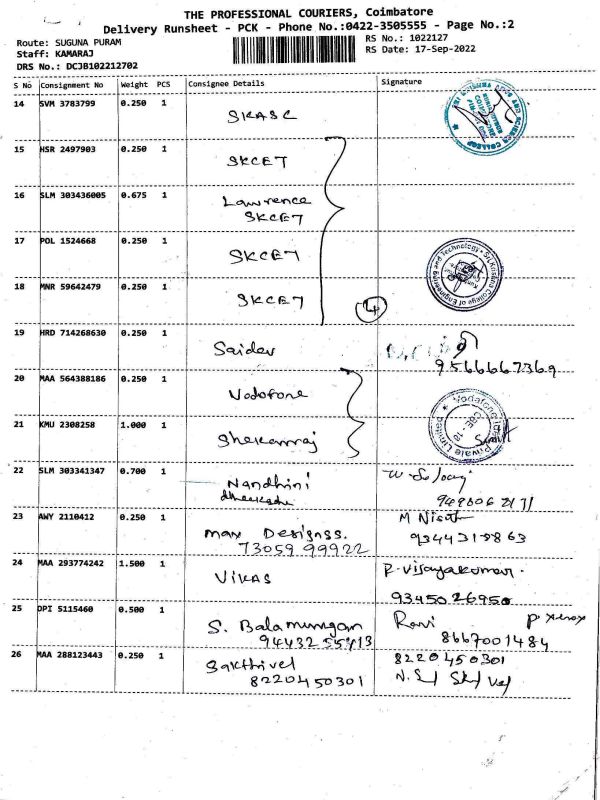 THE PROFESSIONAL COURIERS, Coimbatore
Delivery Runsheet - PCK - Phone No.:0422-3505555 - Page No.:2
Route: SUGUNA PURAM
RS No.: 1022127
Staff: KAMARAJ
RS Date: 17-Sep-2022
DRS No.: DCJB102212702
S No Consignment No Weight PCS Consignee Details Signature
14 SVM 3783799 0.250 1 SKASC
15 HSR 2497903 0.250 1 SKCET
16 SLM 303436005 0.675 1 Lawrence
SKCET
17 POL 1524668 0.250 1 SKCET
Sri Krishna College of Engineering and Technology
18 MNR 59642479 0.250 1 SKCET
4
19 HRD 714268630 0.250 1 Saidev
9566667369
20 MAA 564388186 0.250 1 Vodofone
21 KMU 2308258 1.000 1 Shekamraj
Vodafone Idea Private Limited
CBE-18
22 SLM 303341347 0.700 1 Nandhini
23 AWY 2110412 0.250 1 max Designss. M Nisath
73059 99922
24 MAA 293774242 1.500 1 VIKAS R. Vijayakumar.
9345026950
25 DPI 5115460 0.500 1 S. Balamurugan Ravi P xerox
8667001484
26 MAA 288123443 0.250 1 Sakthivel 8220450301
8220450301